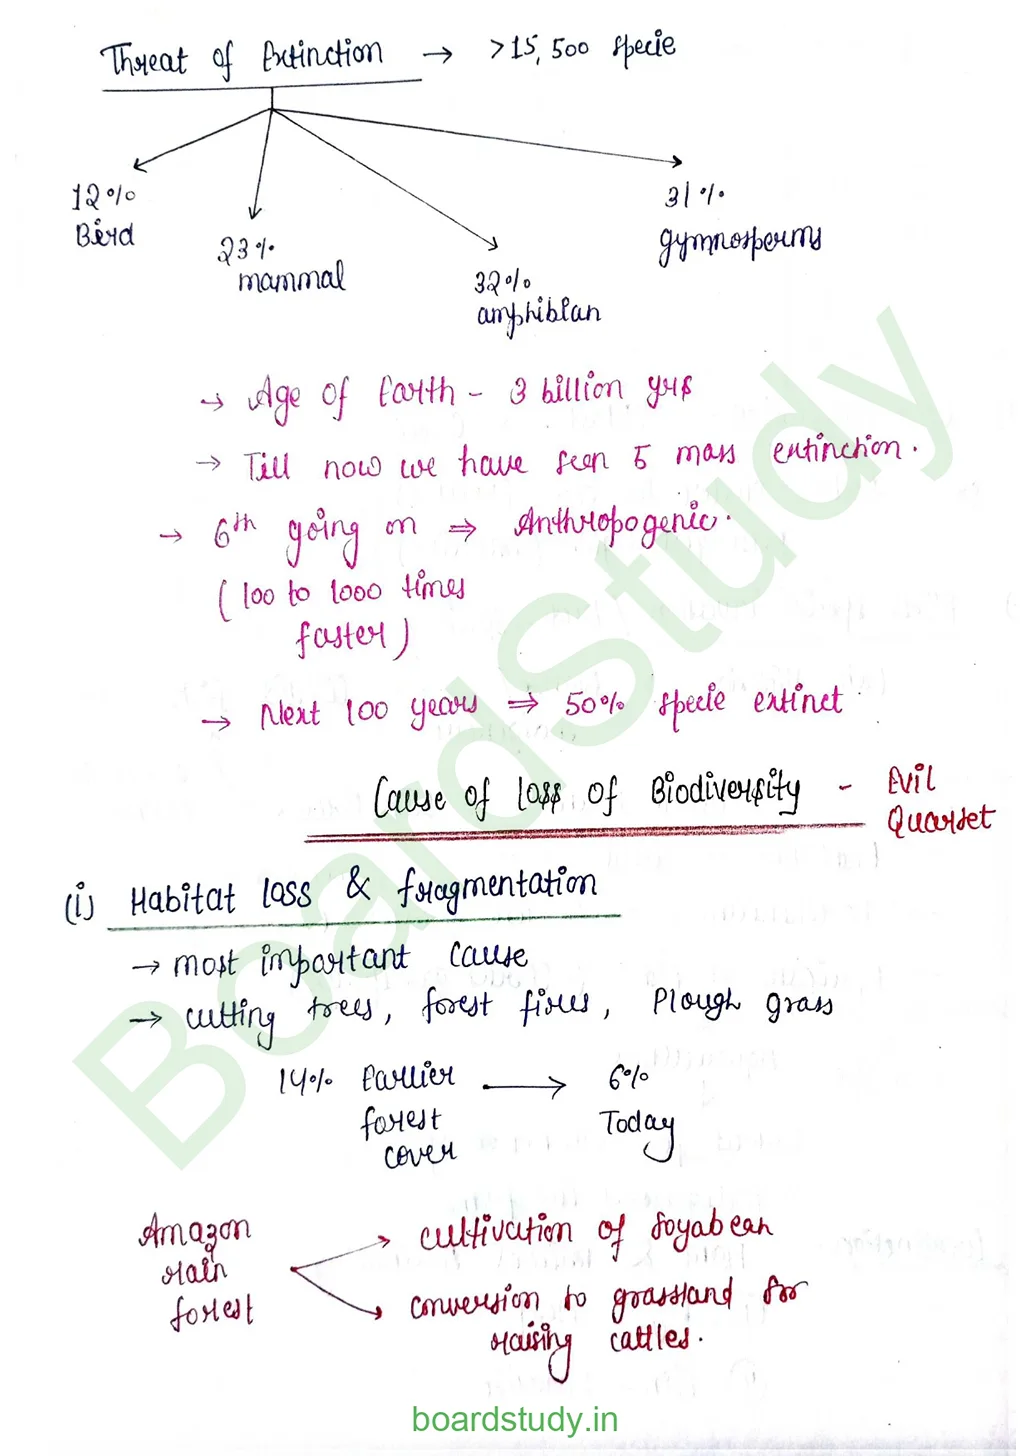 Threat of Extinction → >15,500 specie
12% Bird
23% mammal
32% amphibian
31% gymnosperms
→ Age of Earth - 3 billion yrs
→ Till now we have seen 5 mass extinction.
→ 6th going on ⇒ Anthropogenic.
(100 to 1000 times
faster)
→ Next 100 years ⇒ 50% specie extinct
Cause of loss of Biodiversity - Evil Quartet
(i) Habitat loss & fragmentation
→ most important cause
→ cutting trees, forest fires, Plough grass
14% Earlier forest cover → 6% Today
Amazon rain forest
→ cultivation of soyabean
→ conversion to grassland for
raising cattles.
BoardStudy
boardstudy.in